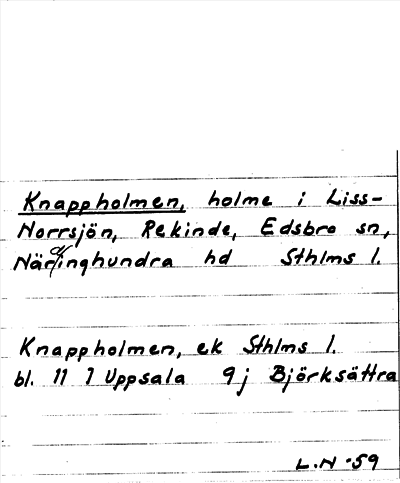 Knappholmen, holme i Liss-
Norrsjön, Rekinde, Edsbro sn,
Närdinghundra hd Sthlms l.
Knappholmen, ek Sthlms l.
bl. 11 I Uppsala 9j Björksättra
L.N -59